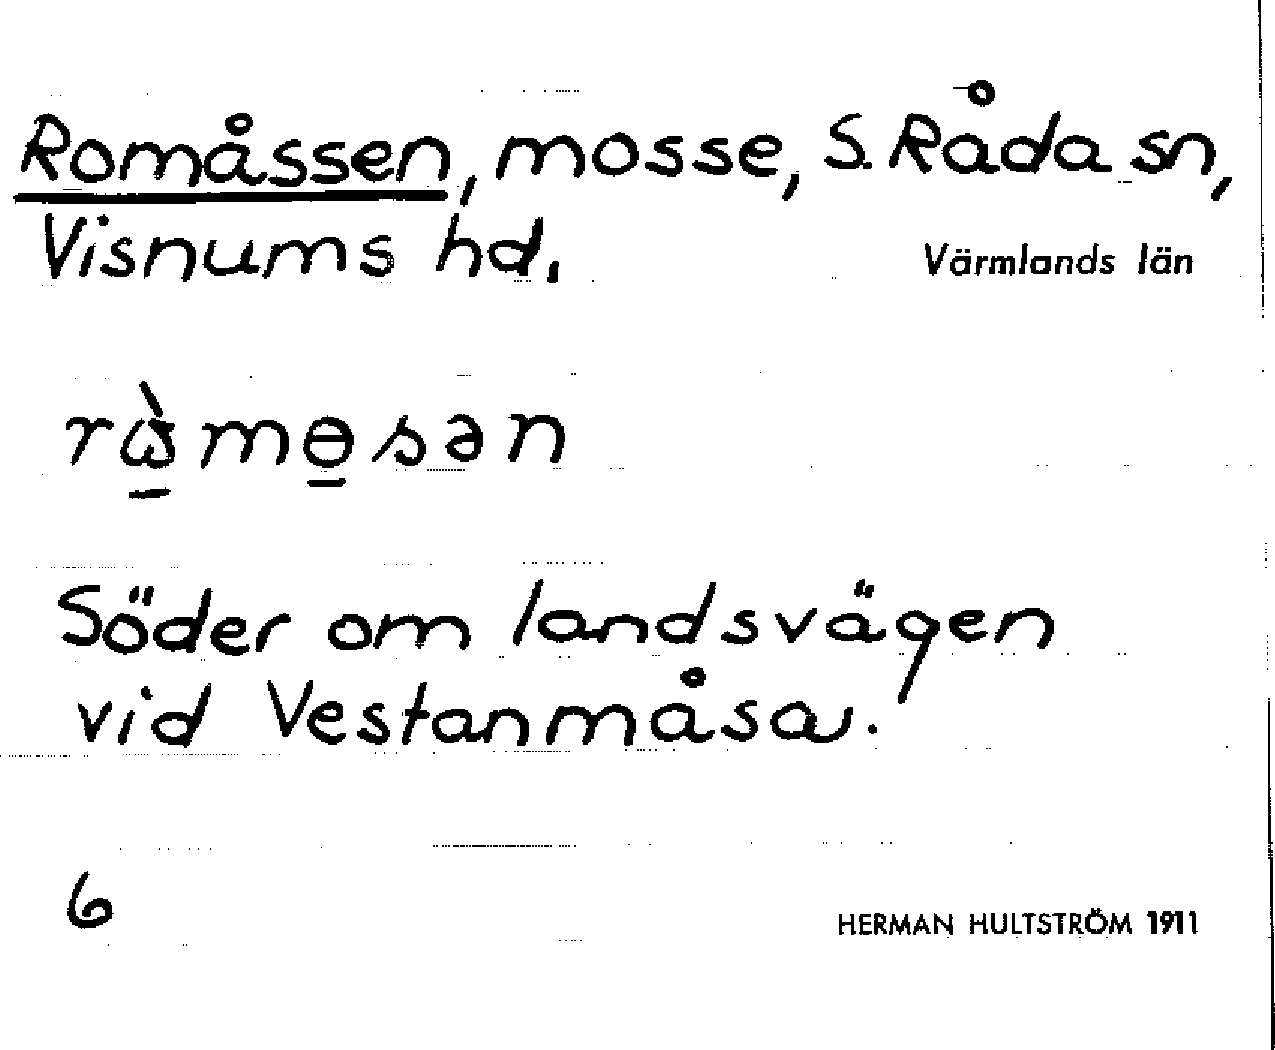 Romåssen, mosse, S. Råda sn,
Visnums hd.
Värmlands län
rɷ̠̀mɵ̠sən
Söder om landsvägen
vid Vestanmåsa.
6
HERMAN HULTSTRÖM 1911